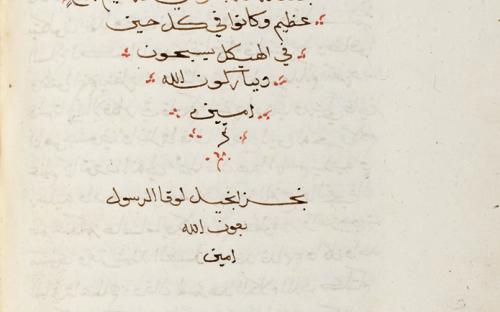 عظيم وكانوا في كل حين
في الهيكل يسبحون
ويباركون الله
امين
نجز انجيل لوقا الرسول
بعون الله
امين